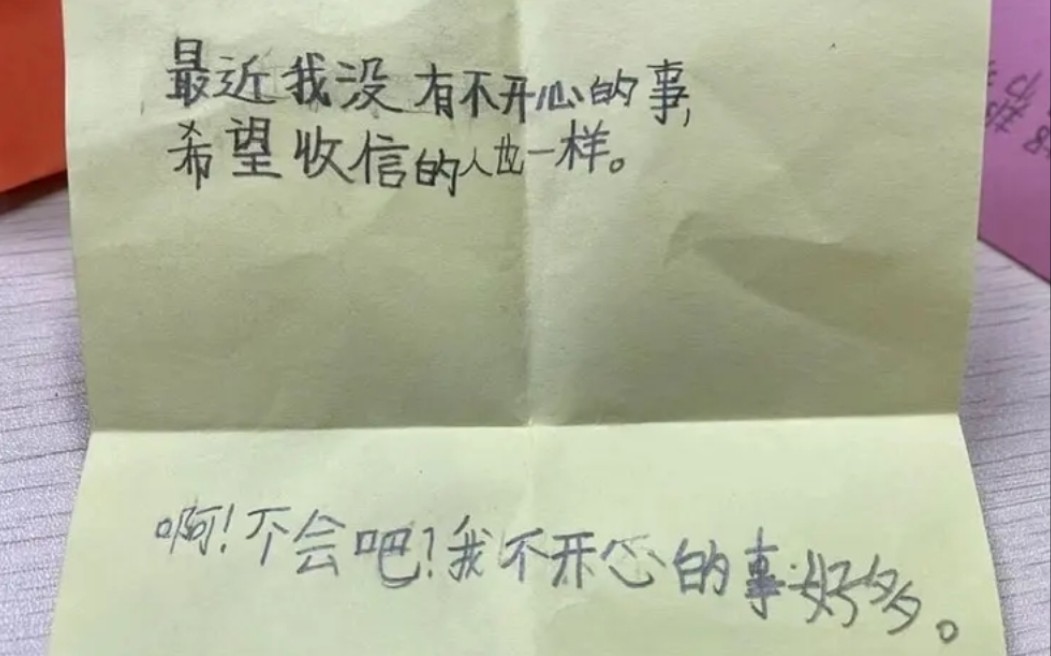 最近我没有不开心的事,
希望收信的人也一样。
啊!不会吧?我不开心的事好多。